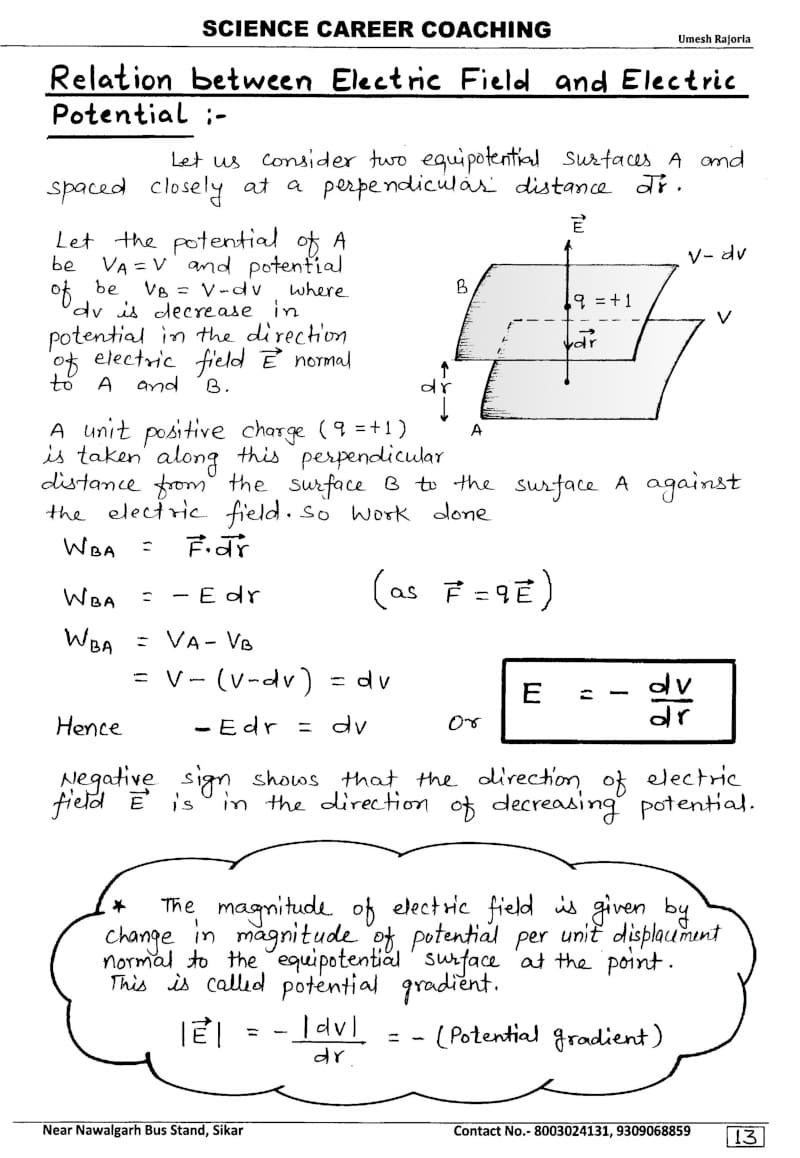 SCIENCE CAREER COACHING
Umesh Rajoria
Relation between Electric Field and Electric
Potential :-
Let us consider two equipotential surfaces A and
spaced closely at a perpendicular distance d͞r.
Let the potential of A
be VA = V and potential
of be VB = V-dv where
dv is decrease in
potential in the direction
of electric field E⃗ normal
to A and B.
E⃗
V- dv
B
q =+1
V
dr⃗
dr
A
A unit positive charge (q =+1)
is taken along this perpendicular
distance from the surface B to the surface A against
the electric field. So work done
WBA = F⃗.dr⃗
WBA = - E dr (as F⃗ = qE⃗)
WBA = VA - VB
= V - (V-dv) = dv
Hence - E dr = dv Or E = - dv/dr
Negative sign shows that the direction of electric
field E⃗ is in the direction of decreasing potential.
* The magnitude of electric field is given by
change in magnitude of potential per unit displacment
normal to the equipotential surface at the point.
This is called potential gradient.
|E⃗| = - |dv|/dr = - (Potential gradient)
Near Nawalgarh Bus Stand, Sikar
Contact No.- 8003024131, 9309068859
13